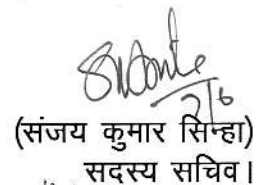 2/6
(संजय कुमार सिन्हा)
सदस्य सचिव।